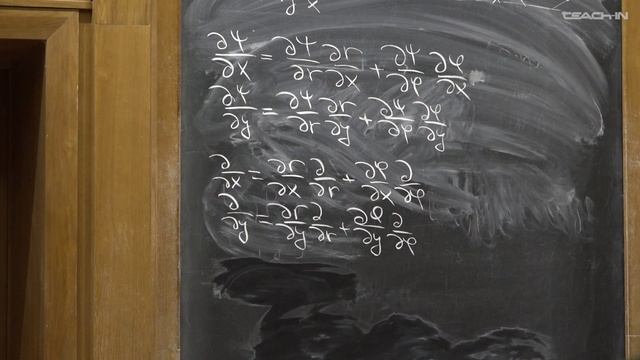 TEACH-IN
∂x
∂Ψ/∂x = ∂Ψ/∂r ∂r/∂x + ∂Ψ/∂φ ∂φ/∂x
∂Ψ/∂y = ∂Ψ/∂r ∂r/∂y + ∂Ψ/∂φ ∂φ/∂y
∂/∂x = ∂r/∂x ∂/∂r + ∂φ/∂x ∂/∂φ
∂/∂y = ∂r/∂y ∂/∂r + ∂φ/∂y ∂/∂φ